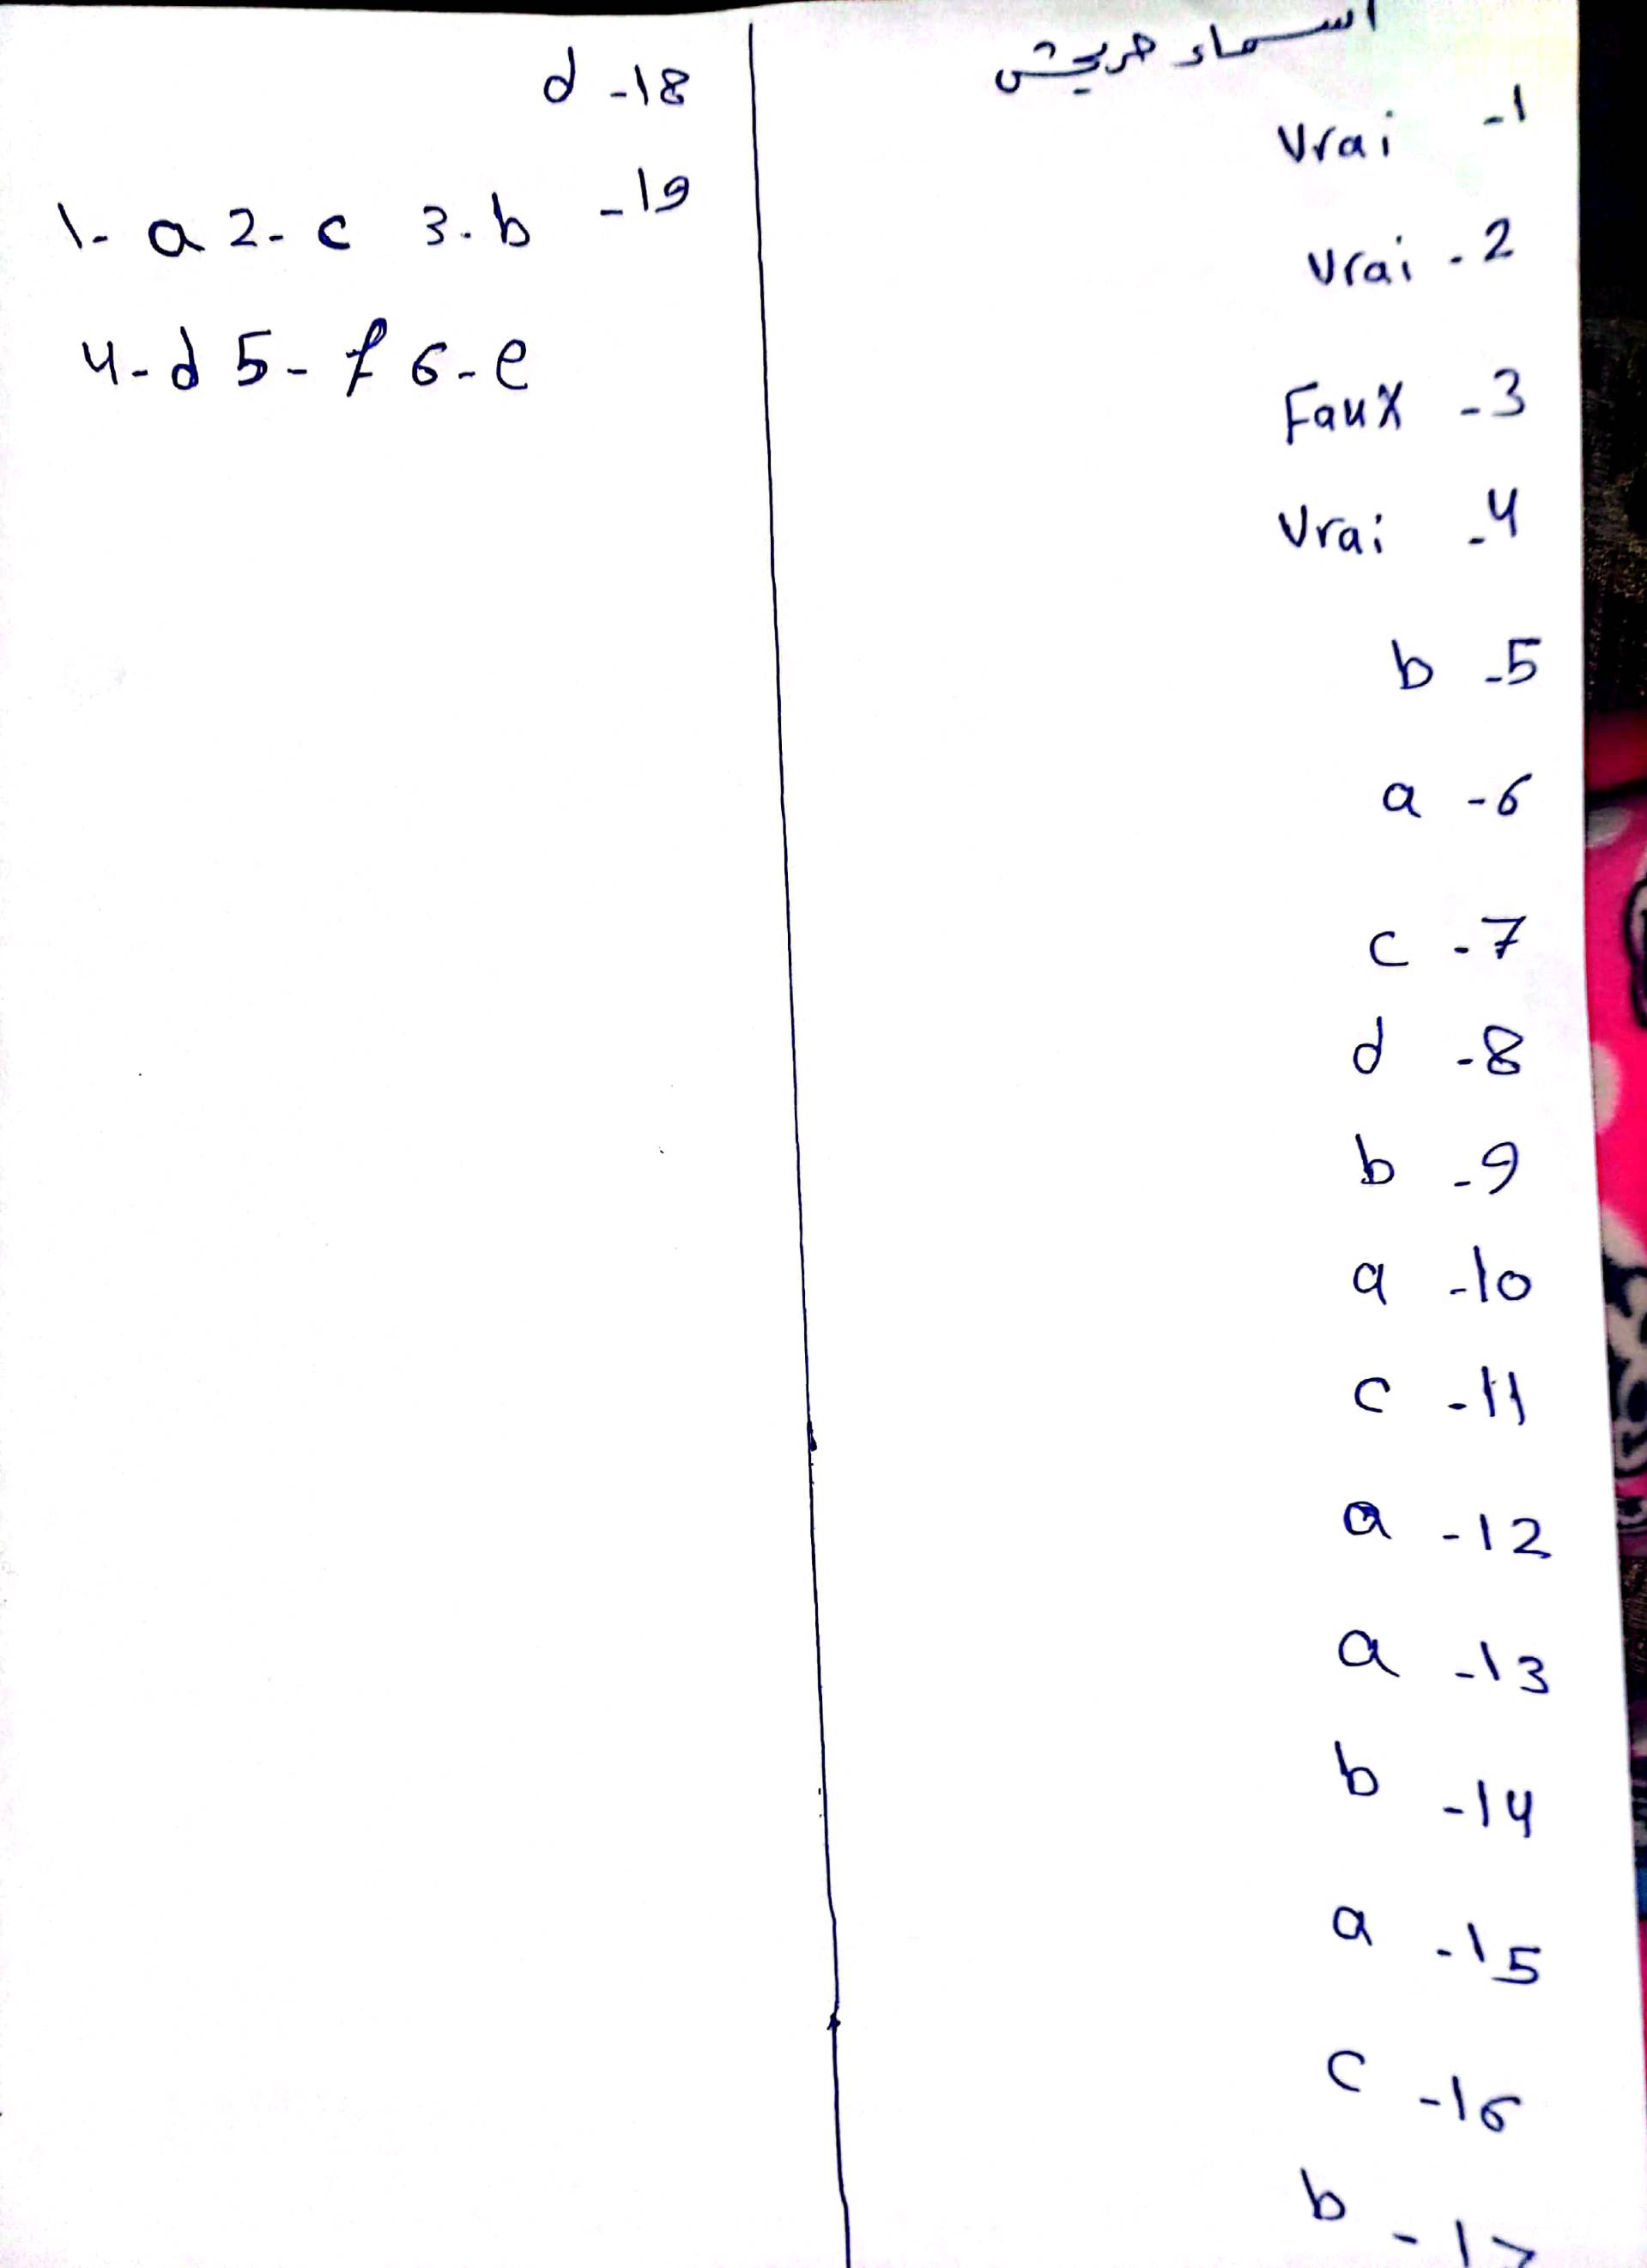 اسماء حريش
Vrai -1
Vrai -2
Faux -3
Vrai -4
b -5
a -6
c -7
d -8
b -9
a -10
c -11
a -12
a -13
b -14
a -15
c -16
b -17
d -18
1- a 2- c 3-b -19
4-d 5- f 6-e